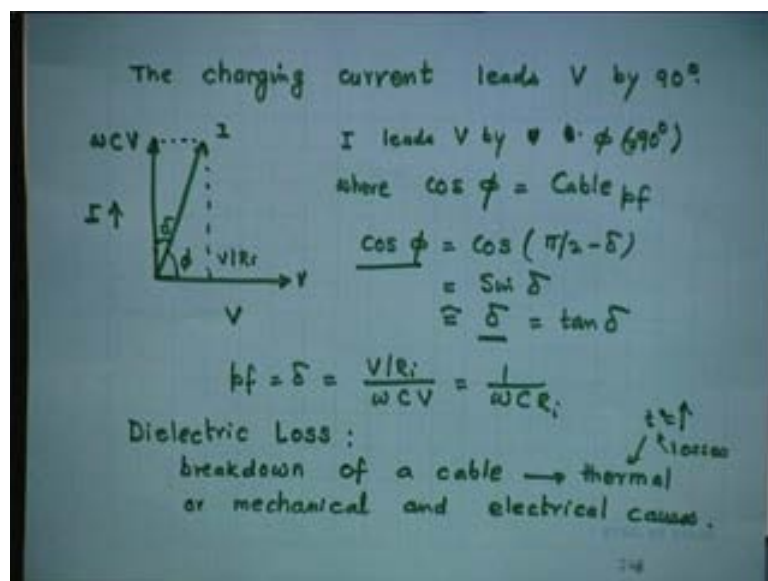 The charging current leads V by 90°.
ωCV
I
I leads V by φ (≤90°)
where cos φ = Cable pf
I↑
δ
φ
V/Ri
V
V
cos φ = cos (π/2 - δ)
= Sin δ
≅ δ = tan δ
pf = δ = V/Ri / ωCV = 1 / ωCRi
Dielectric Loss :
losses
breakdown of a cable → thermal
or mechanical and electrical causes.